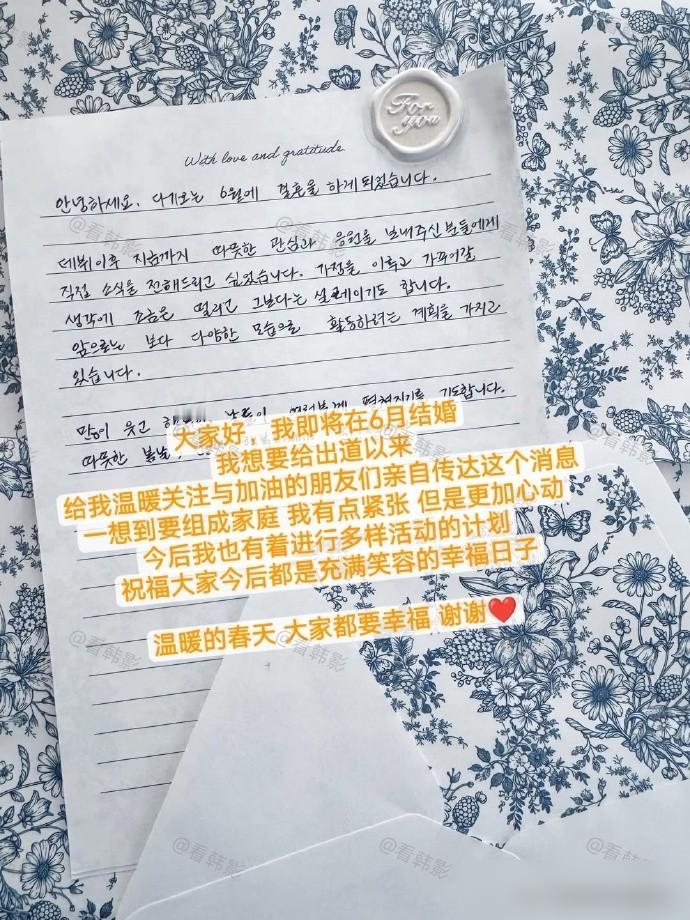 For
you
With love and gratitude
안녕하세요. 다가오는 6월에 결혼을 하게 되었습니다.
데뷔이후 지금까지 따뜻한 관심과 응원을 보내주신 분들에게
직접 소식을 전해드리고 싶었습니다. 가정을 이루고 가꾸어갈
생각에 조금은 떨리고 그보다는 설레이기도 합니다.
앞으로는 보다 다양한 모습으로 활동하려는 계획을 가지고
있습니다.
많이 웃고 날들이 여러분께 펼쳐지기를 기도합니다.
따뜻한 봄날
大家好 我即将在6月结婚
我想要给出道以来
给我温暖关注与加油的朋友们亲自传达这个消息
一想到要组成家庭 我有点紧张 但是更加心动
今后我也有着进行多样活动的计划
祝福大家今后都是充满笑容的幸福日子
温暖的春天 大家都要幸福 谢谢❤️
@看韩影
@看韩影
@看韩影
@看韩影
@看韩影
@看韩影